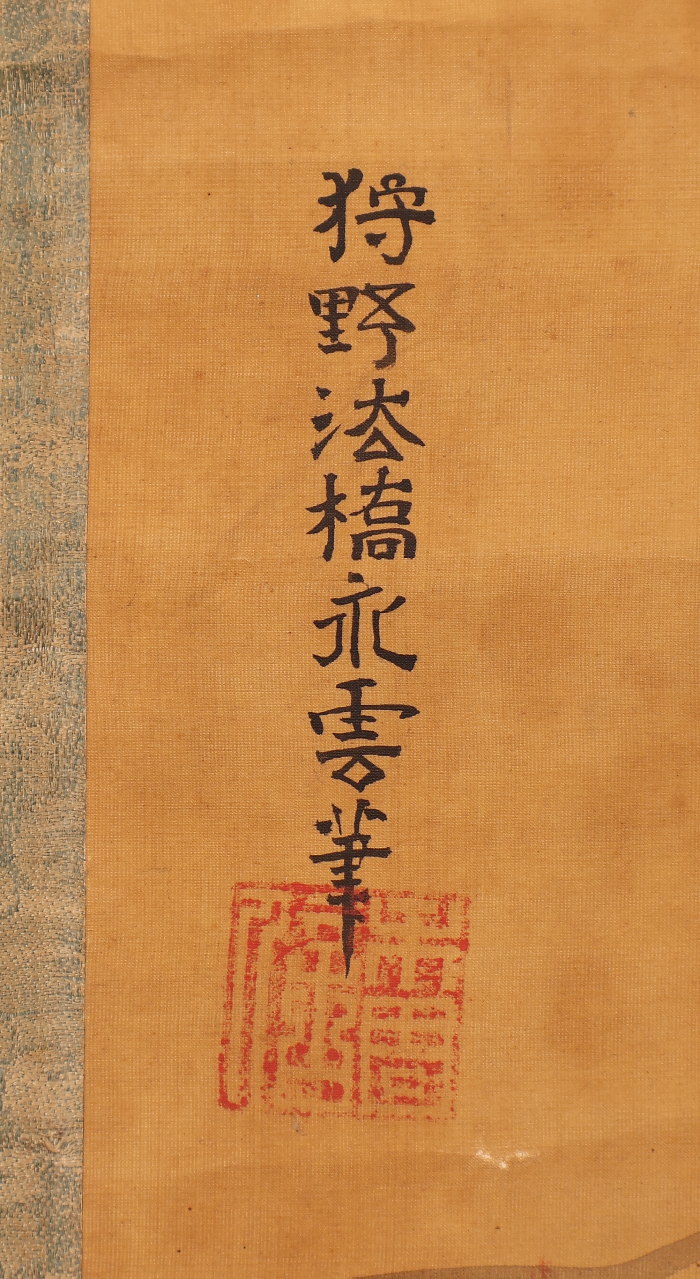 狩野法橋永雲筆